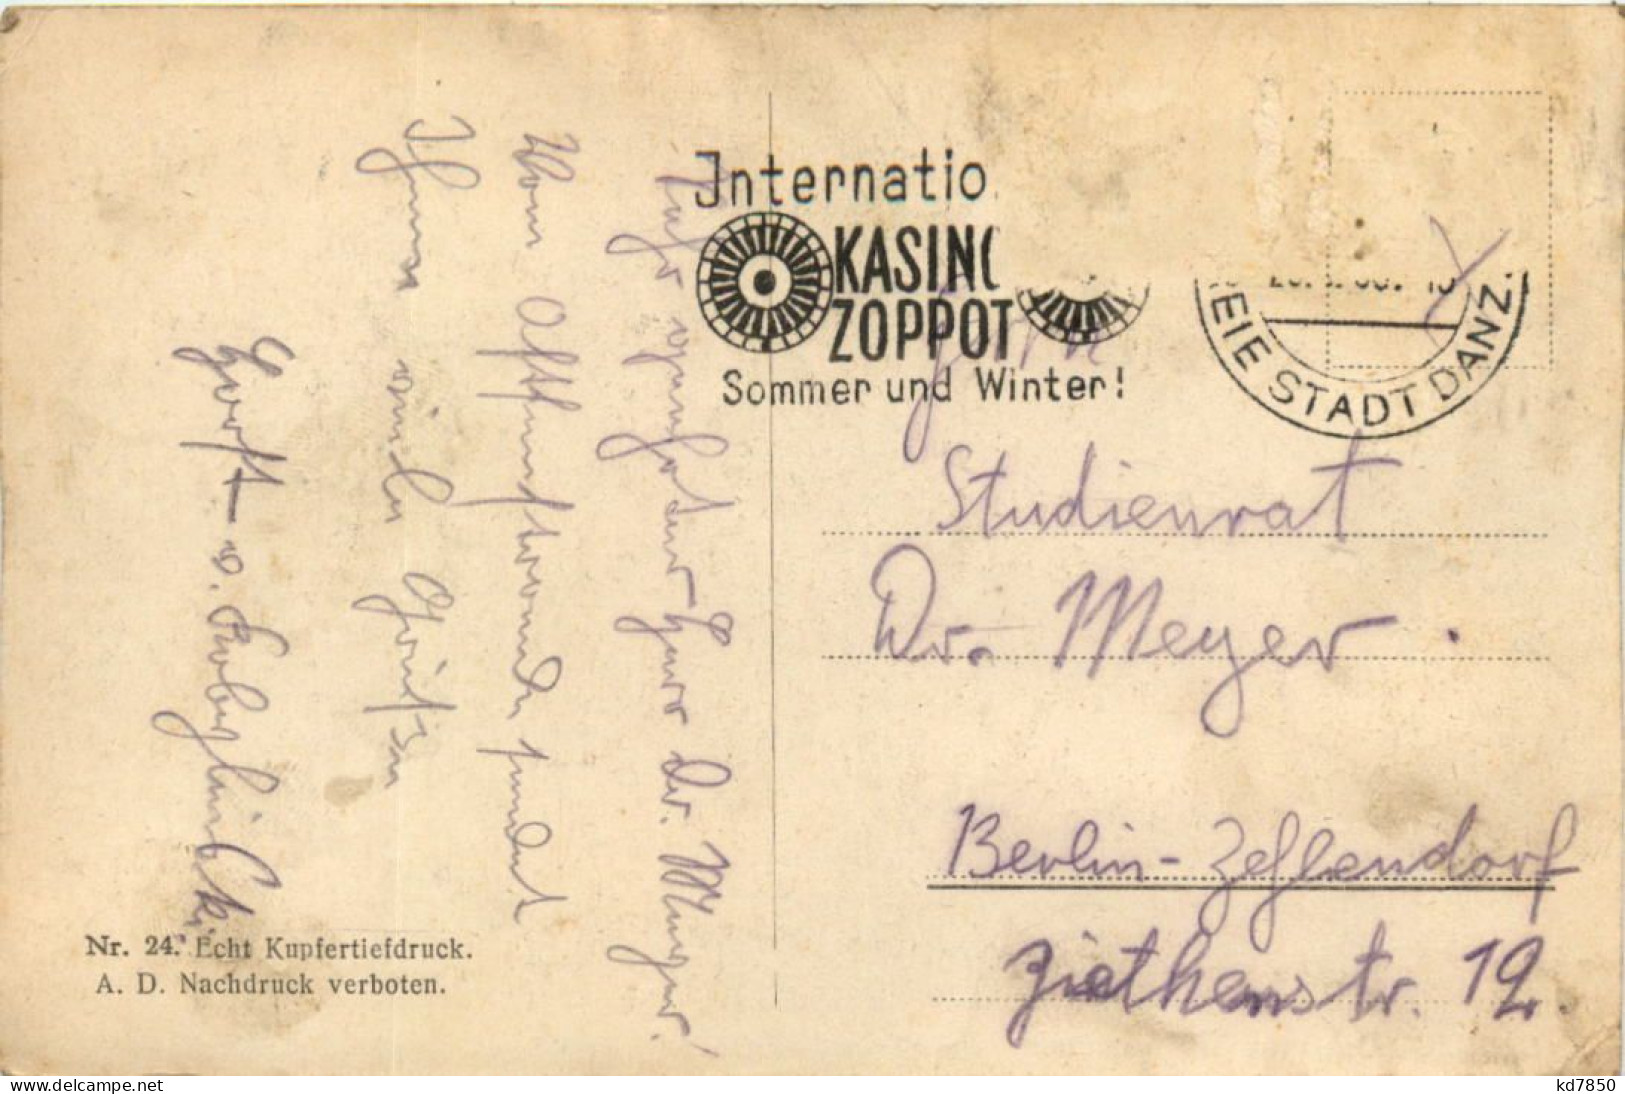 Sehr geehrter Herr Dr. Meyer!
Vom Ostseestrande sendet
Ihnen viele Grüße
Horst v.
Nr. 24. Echt Kupfertiefdruck.
A. D. Nachdruck verboten.
Internatio
KASINO
ZOPPOT
Sommer und Winter!
EIE STADT DANZ
Herrn
Studienrat
Dr. Meyer.
Berlin-Zehlendorf
Ziethenstr. 12.
www.delcampe.net
kd7850